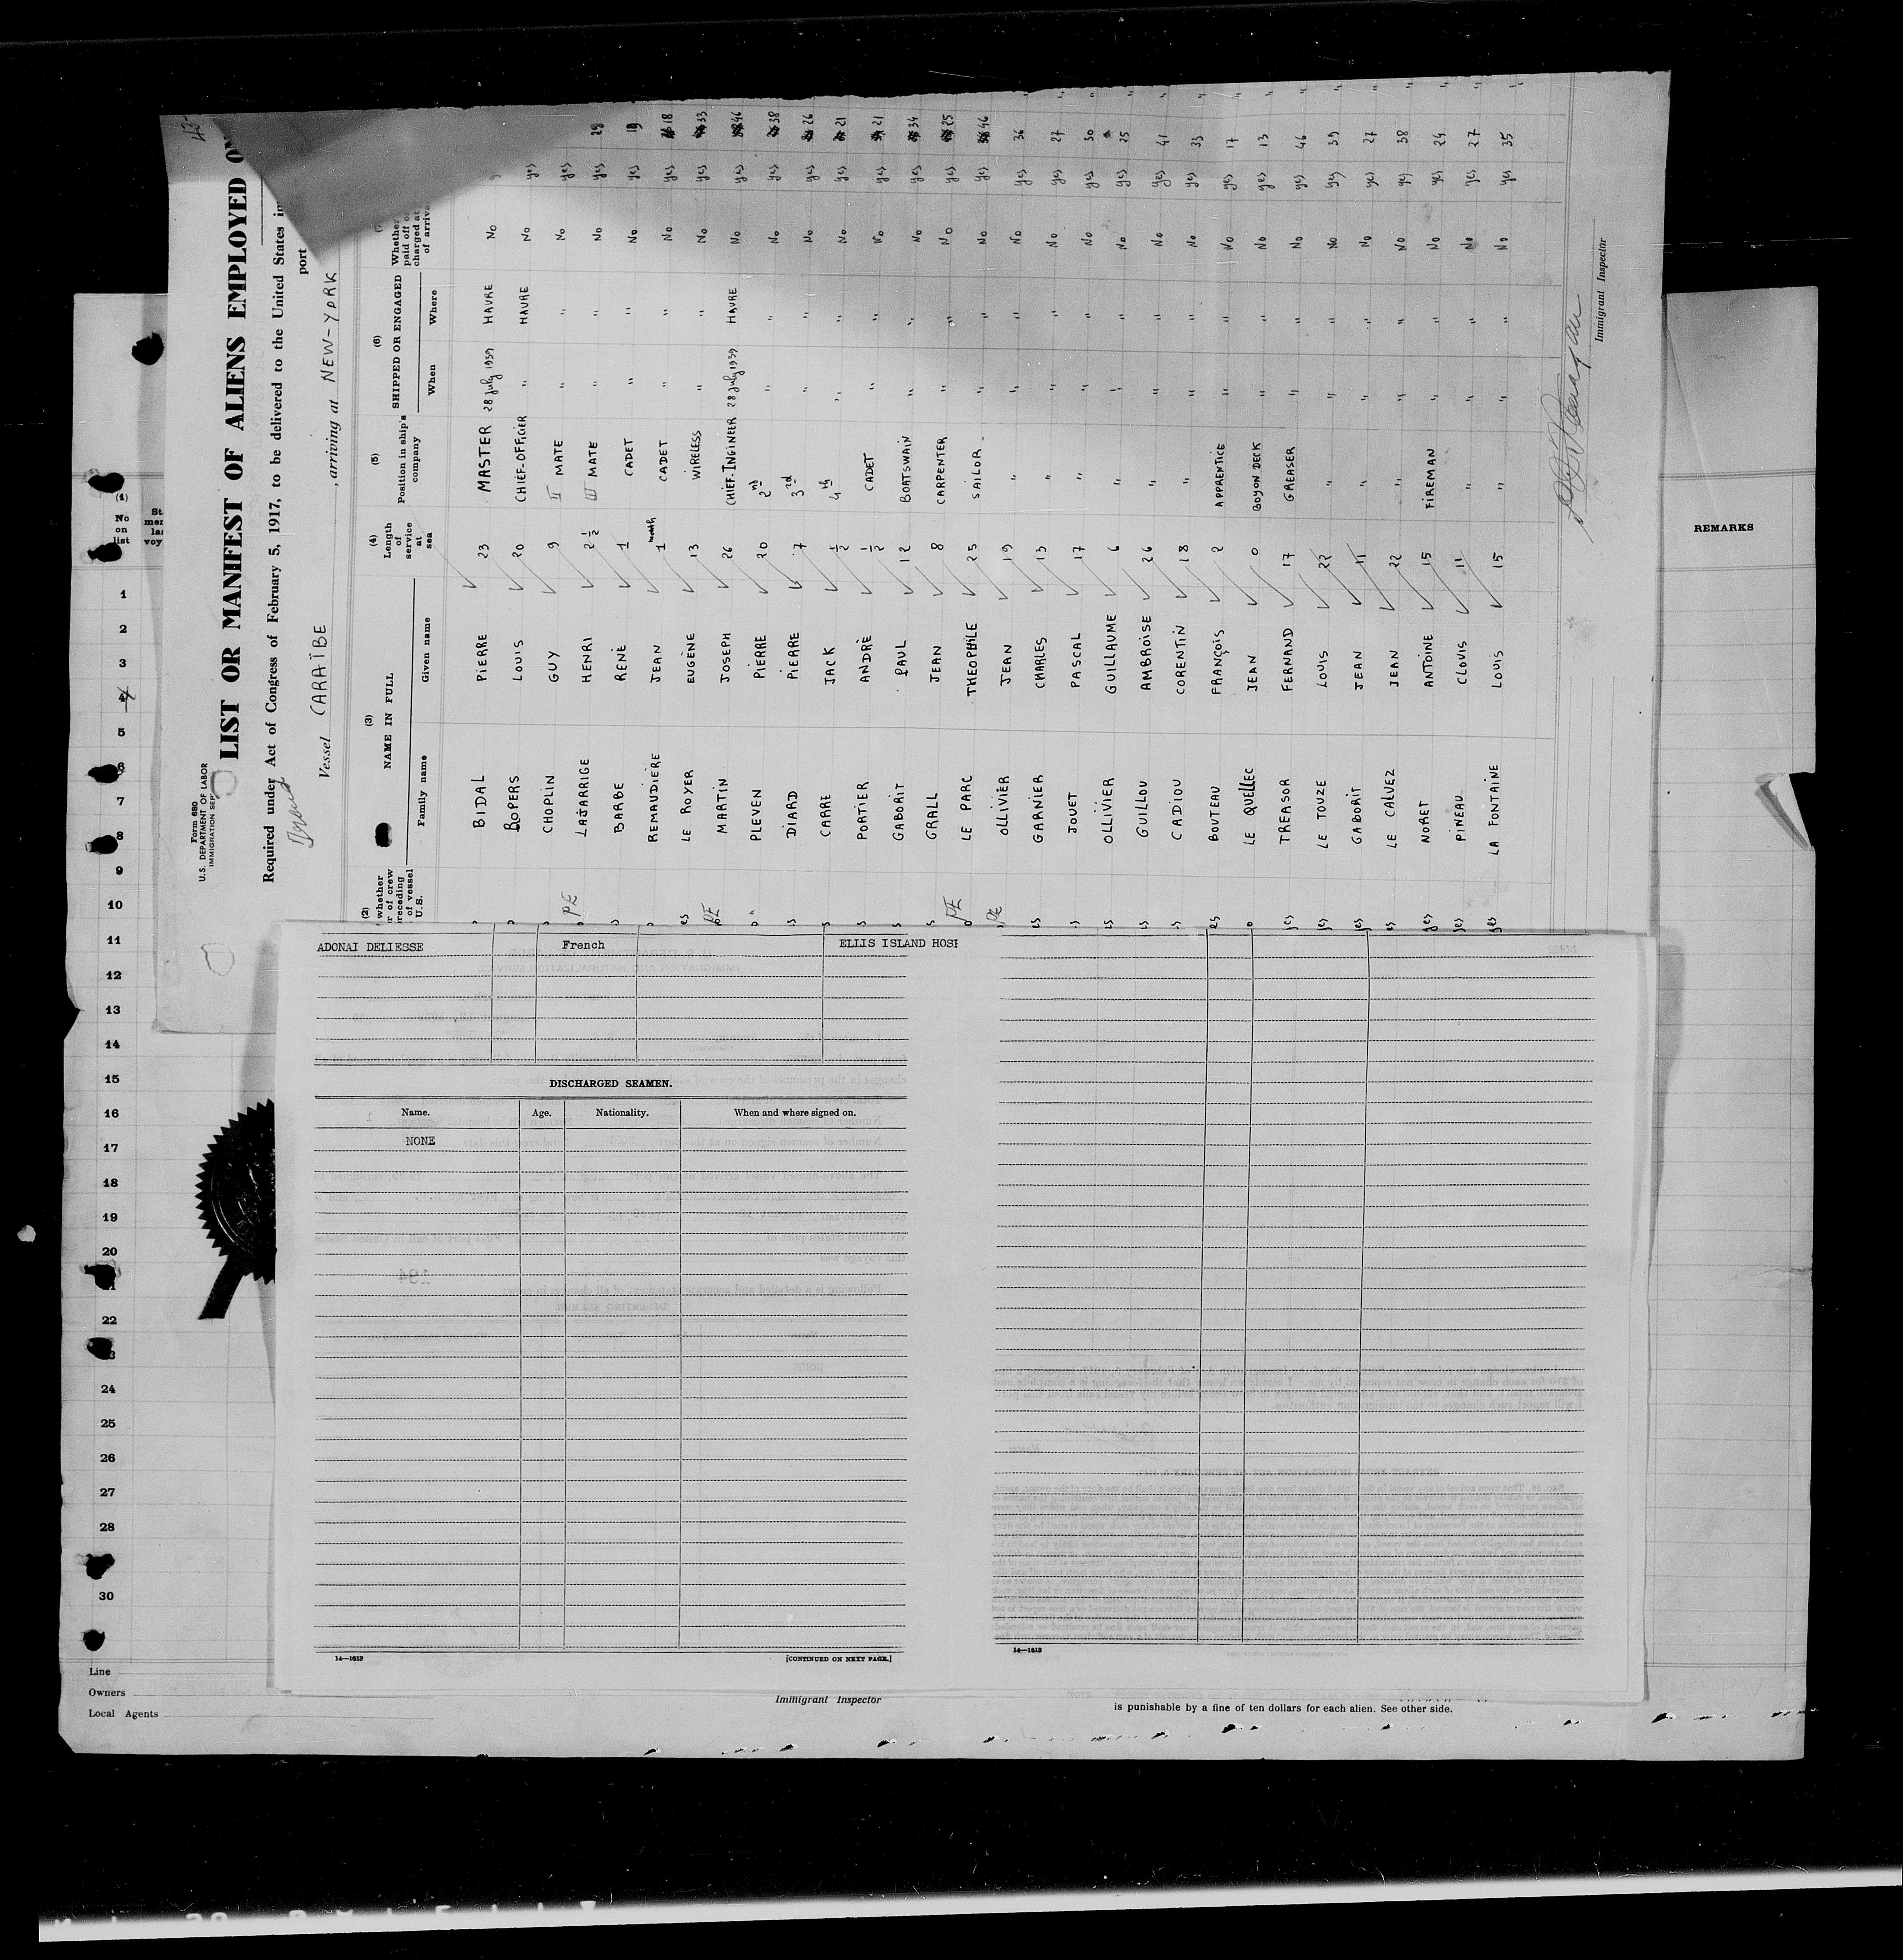 Form 680
U.S. DEPARTMENT OF LABOR
IMMIGRATION SER
LIST OR MANIFEST OF ALIENS EMPLOYED ON
Required under Act of Congress of February 5, 1917, to be delivered to the United States in
port
Vessel CARAÏBE , arriving at NEW-YORK
(2) (3) (4) (5) (6)
whether r of crew receding of vessel U.S. NAME IN FULL Length of service at sea Position in ship's company SHIPPED OR ENGAGED Whether paid off or charged at of arriva
Family name Given name When Where
BIDAL PIERRE 23 MASTER 28 July 1939 HAVRE No
ROPERS LOUIS 20 CHIEF-OFFICIER " HAVRE No yes
CHOPLIN GUY 9 II MATE " " No yes
LAJARRIGE HENRI 2 1/2 III MATE " " No yes 28
BARBE RENÈ 1 CADET " " No yes 19
REMAUDIERE JEAN 1 month CADET " " No yes 18
LE ROYER EUGÈNE 13 WIRELESS " " No yes 33
MARTIN JOSEPH 26 CHIEF-INGINEER 28 July 1939 HAVRE No yes 46
PLEVEN PIERRE 20 2nd " " No yes 38
DIARD PIERRE 7 3rd " " No yes 26
CARRE JACK 1/2 4th " " No yes 21
PORTIER ANDRÈ 1/2 CADET " " No yes 21
GABORIT PAUL 12 BOATSWAIN " " No yes 34
GRALL JEAN 8 CARPENTER " " No yes 25
LE PARC THEOPHILE 25 SAILOR " " No yes 46
OLLIVIER JEAN 19 " " " No yes 36
GARNIER CHARLES 13 " " " No yes 27
JOUET PASCAL 17 " " " No yes 30
OLLIVIER GUILLAUME 6 " " " No yes 25
GUILLOU AMBROISE 26 " " " No yes 41
CADIOU CORENTIN 18 " " " No yes 33
BOUTEAU FRANÇOIS 2 APPRENTICE " " No yes 17
LE QUELLEC JEAN 0 BOY ON DECK " " No yes 13
TREASOR FERNAND 17 GREASER " " No yes 46
LE TOUZE LOUIS 22 " " " No yes 39
GABORIT JEAN 11 " " " No yes 27
LE CALVEZ JEAN 22 " " " No yes 38
NORET ANTOINE 15 FIREMAN " " No yes 24
PINEAU CLOVIS 11 " " " No yes 27
LA FONTAINE LOUIS 15 " " " No yes 35
Immigrant Inspector
(1)
No on list
1
2
3
4
5
6
7
8
9
10
11
12
13
14
15
16
17
18
19
20
22
24
25
26
27
28
30
REMARKS
ADONAI DELIESSE French ELLIS ISLAND HOSP
DISCHARGED SEAMEN.
Name. Age. Nationality. When and where signed on.
NONE
14—1613 [CONTINUED ON NEXT PAGE.]
14—1613
Line
Owners
Local Agents
Immigrant Inspector
is punishable by a fine of ten dollars for each alien. See other side.